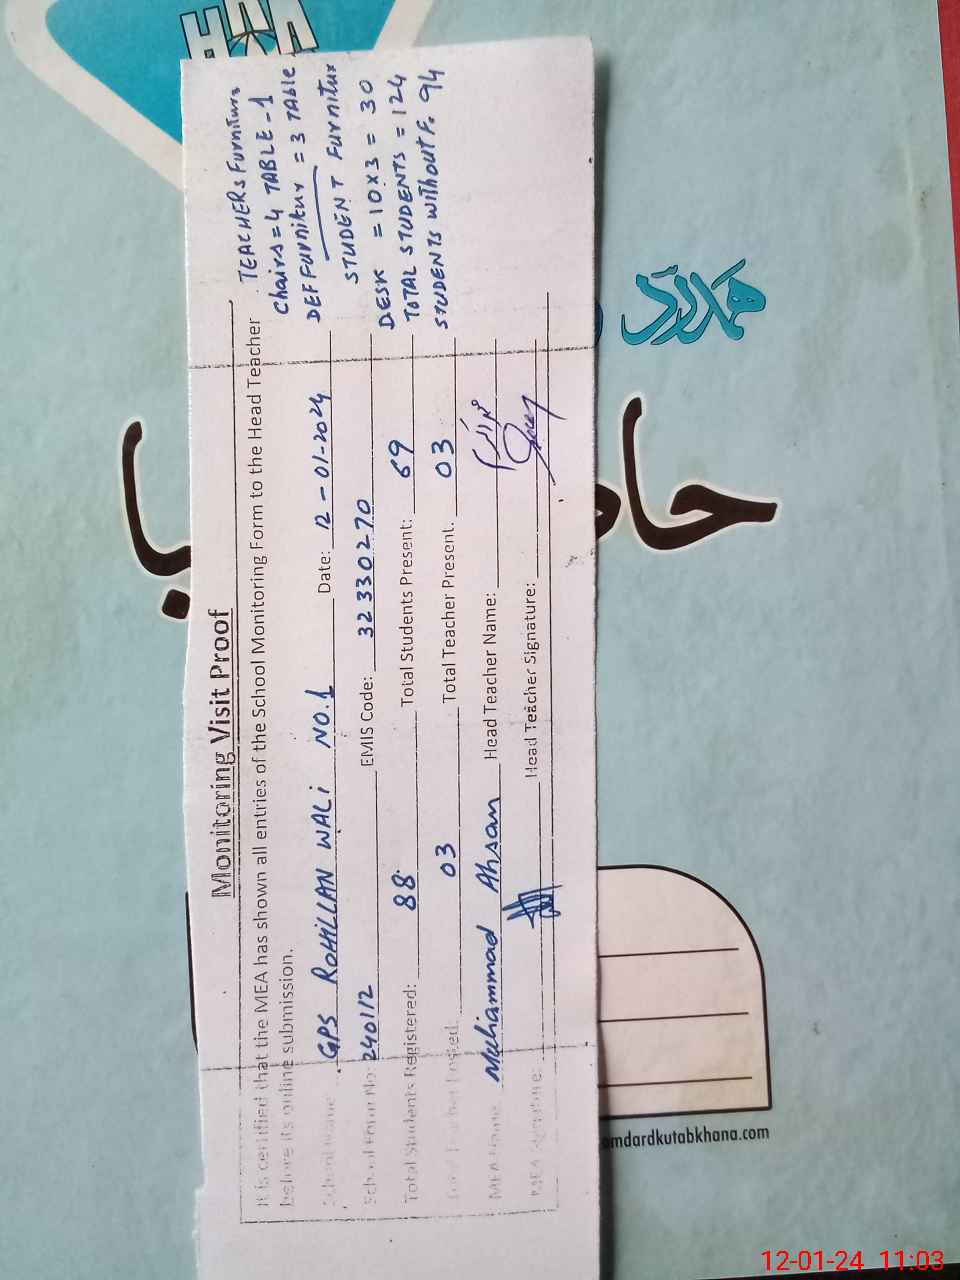 Monitoring Visit Proof
It is certified that the MEA has shown all entries of the School Monitoring Form to the Head Teacher
before its online submission.
School Name GPS ROHILLAN WALI NO.1 Date: 12-01-2024
School Form No: 240112 EMIS Code: 32330270
Total Students Registered: 88 Total Students Present: 69
Total Teacher Posted: 03 Total Teacher Present. 03
MEA Name Muhammad Ahsan Head Teacher Name:
MEA Signature: Head Teacher Signature:
TEACHERS Furniture
Chairs = 4 TABLE - 1
DEF Furnitur = 3 TABLE
STUDENT Furnitur
DESK = 10 x 3 = 30
TOTAL STUDENTS = 124
STUDENTS without F. 94
ہمدرد
omdardkutabkhana.com
12-01-24 11:03